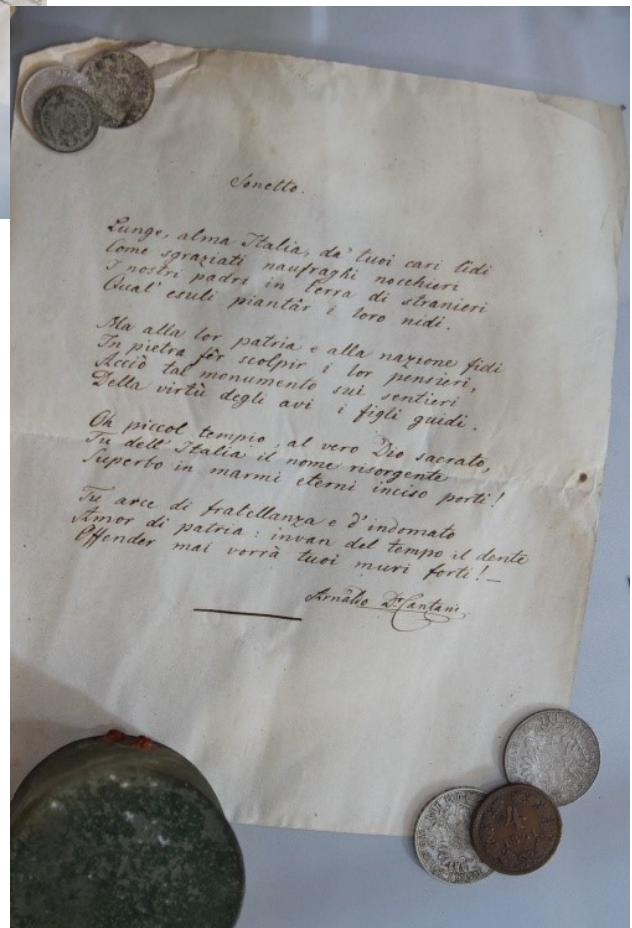 Sonetto.
Lunge, alma Italia, da' tuoi cari lidi
Come sgraziati naufraghi nocchieri
I nostri padri in terra di stranieri
Qual' esuli piantâr i loro nidi.
Ma alla lor patria e alla nazione fidi
In pietra fêr scolpir i lor pensieri,
Acciò tal monumento sui sentieri
Della virtù degli avi i figli guidi.
Oh piccol tempio, al vero Dio sacrato,
Tu dell' Italia il nome risorgente
Superbo in marmi eterni inciso porti!
Tu arce di fratellanza e d'indomato
Amor di patria: invan del tempo il dente
Offender mai vorrà tuoi muri forti! —
Arnaldo Dr. Cantani